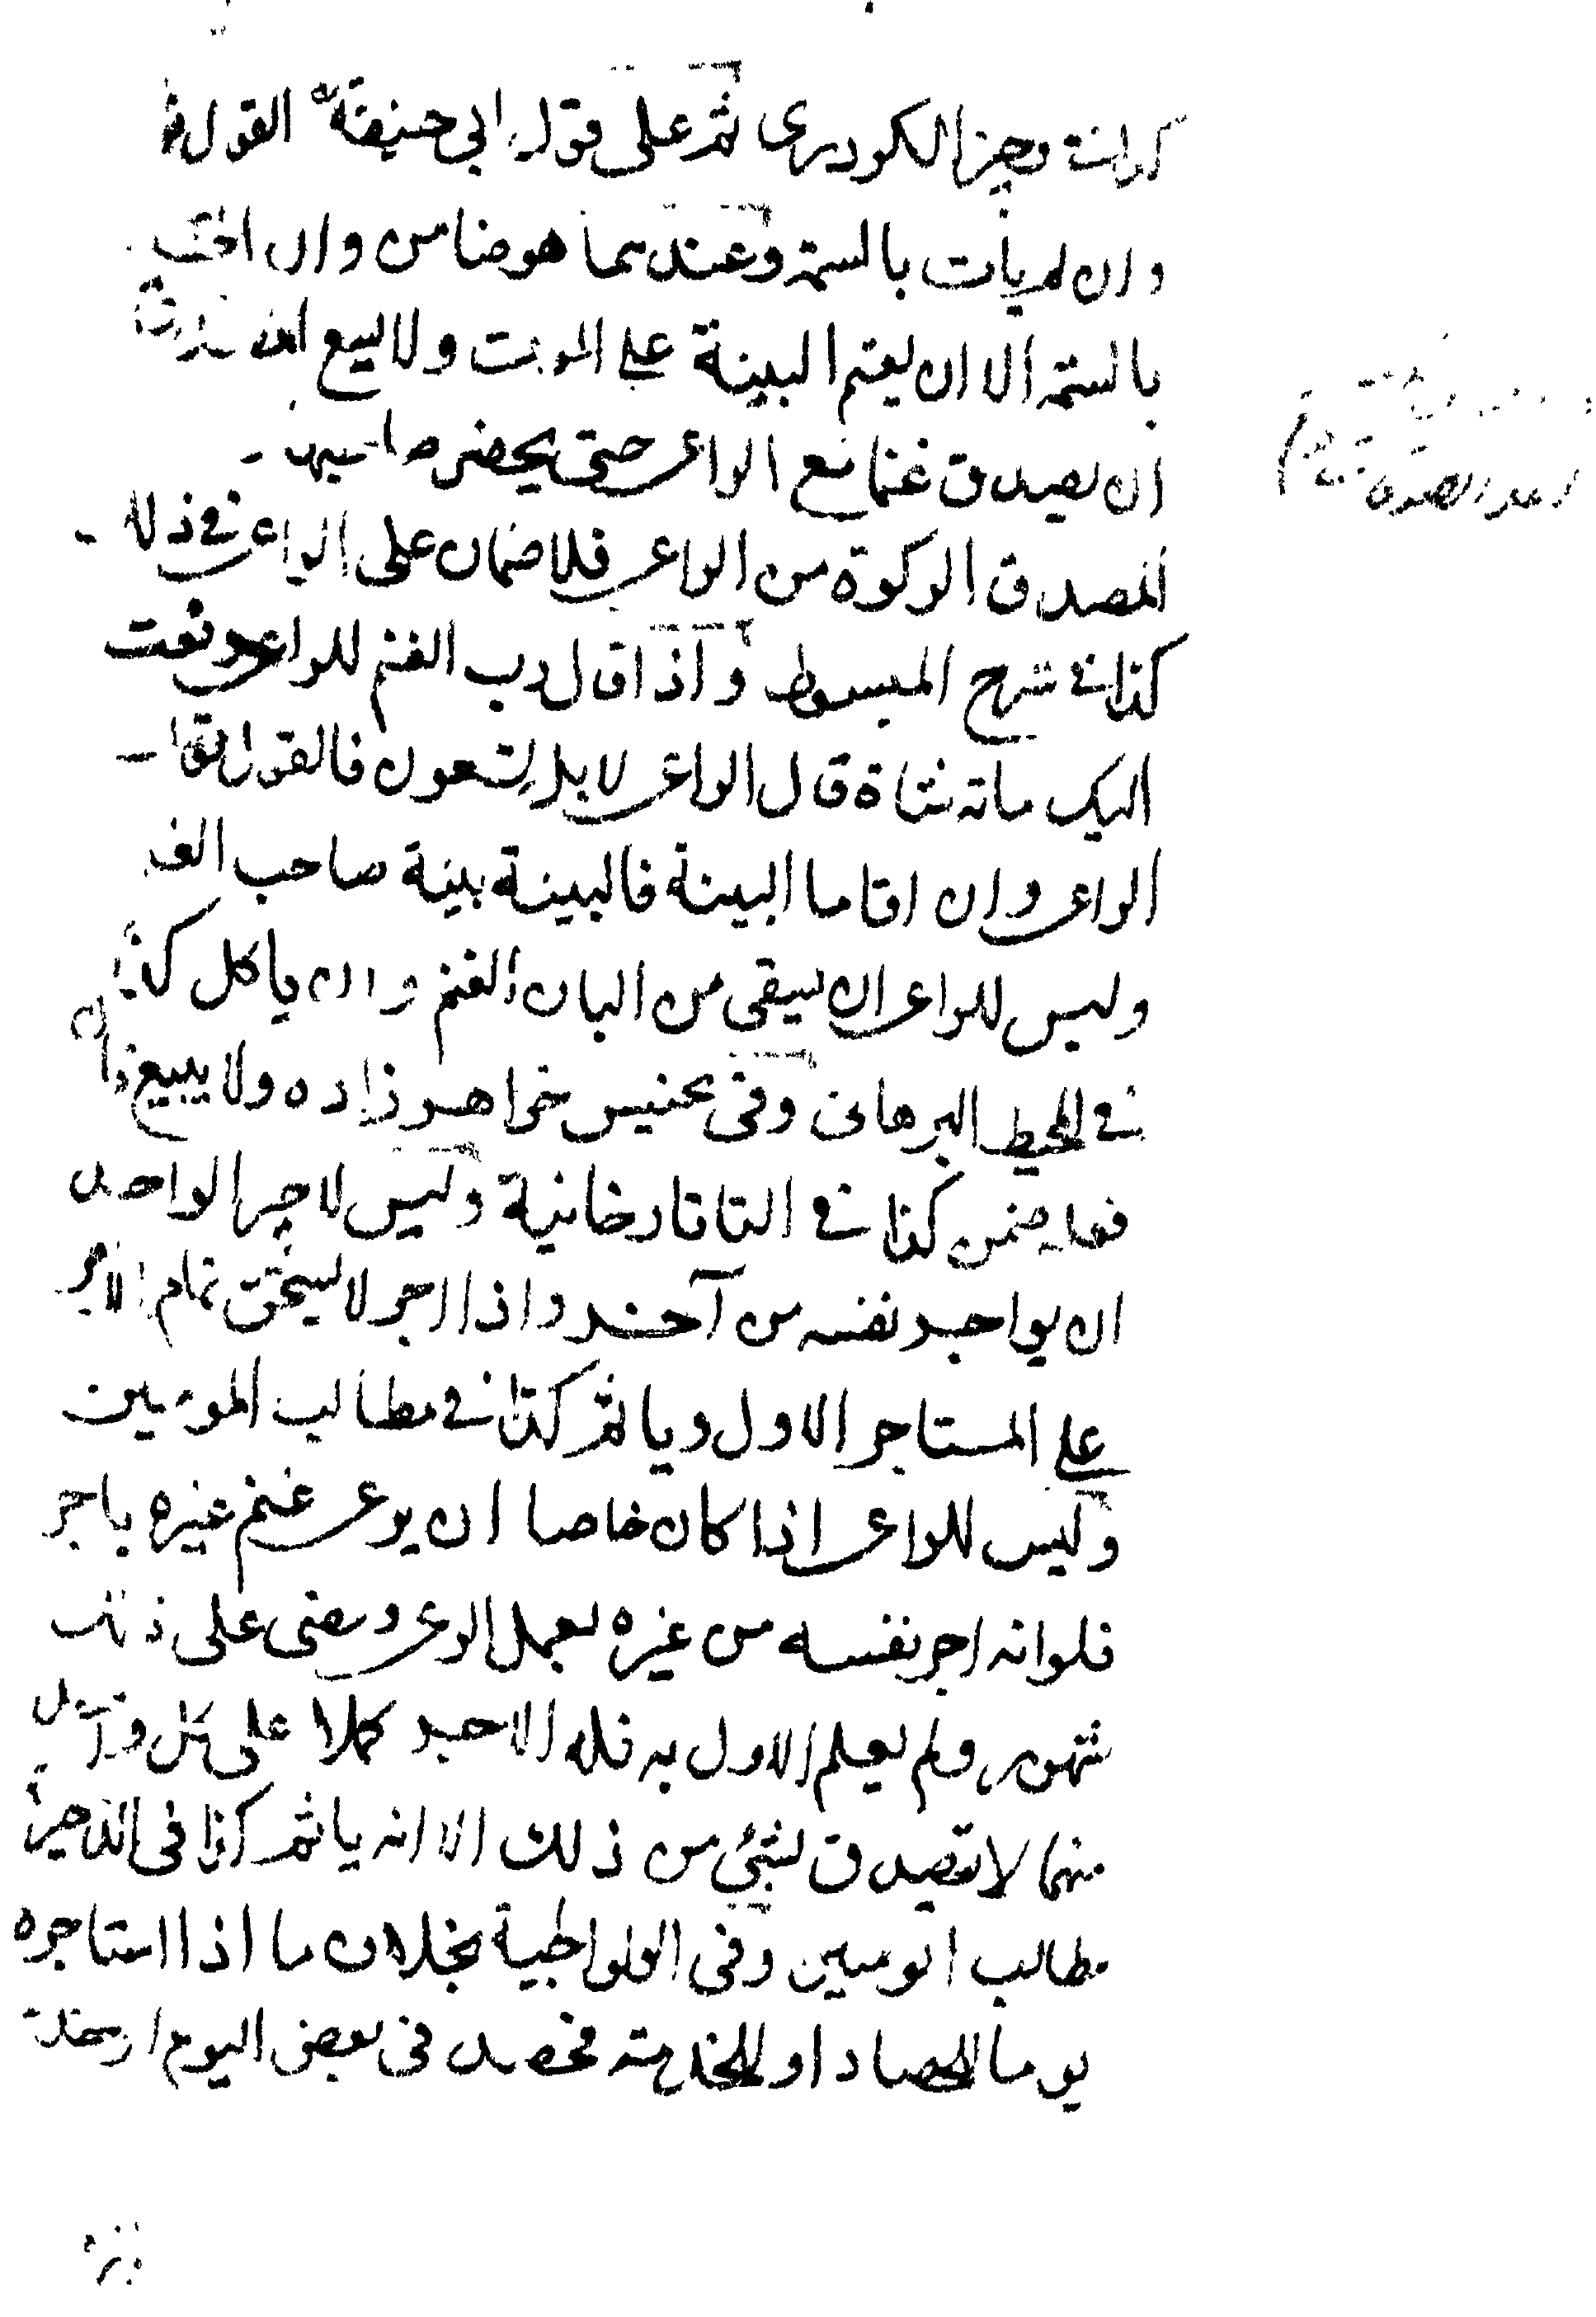 كذا في وجيز الكردرى ثم على قول ابي حنيفة القول
وان لم يأت بالسمة وعندهما هو ضامن وان
بالسمة الا ان يقيم البينة على الموت ولا يسع
ان يصدق غنما مع الراعى حتى يحضر صاحبها
المصدق الزكوة من الراعى فلا ضمان على الراعى في ذلك
كذا في شرح المبسوط واذا قال رب الغنم للراعى دفعت
اليك مائة شاة قال الراعى لا بل تسعون فالقول
الراعى وان اقاما البينة فالبينة بينة صاحب
وليس للراعى ان يسقى من البان الغنم وان ياكل كذا
في المحيط البرهانى وفى تجنيس خواهر زاده ولا يبيع
ضمن كذا في التاتارخانية وليس لاجير الواحد
ان يواجر نفسه من آخر واذا اجر لا يستحق تمام الاجر
على المستاجر الاول وياثم كذا في مطالب المومنين
وليس للراعى اذا كان خاصا ان يرعى غنم غيره باجر
فلو انه اجر نفسه من غيره لعمل الرعى ومضى على ذلك
شهور ولم يعلم الاول به فله الاجر كملا على كل
منهما لا يتصدق بشئ من ذلك الا انه ياثم كذا فى الذخيرة
مطالب المومنين وفى الولوالجية بخلاف ما اذا استاجره
يوما للحصاد او للخدمة فحصد فى بعض اليوم